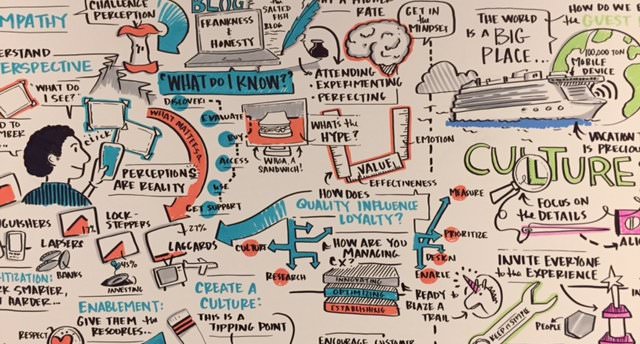 EMPATHY
CHALLENGE
PERCEPTION
BLOG
FRANKNESS
& HONESTY
SALTED
FISH
BLOG
RATE
GET IN
the MINDSET
THE WORLD
IS A BIG
PLACE...
HOW DO WE
the GUEST
100,000 TON
MOBILE
DEVICE
PERSPECTIVE
"WHAT DO I KNOW?"
ATTENDING
• EXPERIMENTING
• PERFECTING
WHAT DO
I SEE?
CLICK
PERCEPTIONS
ARE REALITY
WHAT MATTERS?
EVALUATE
BUY
ACCESS
USE
GET SUPPORT
WHOA, A
SANDWICH!
WHAT'S the
HYPE?
VALUE
EMOTION
EFFECTIVENESS
VACATION
IS PRECIOUS
CULTURE
FOCUS ON
the DETAILS
HOW DOES
QUALITY INFLUENCE
LOYALTY?
MEASURE
PRIORITIZE
DESIGN
ENABLE
CULTURE
RESEARCH
HOW ARE YOU
MANAGING
CX
OPTIMIZING
ESTABLISHING
READY to
BLAZE A
TRAIL
LAPSERS
17%
BANKS
LOCK-
STEPPERS
45%
27%
LAGGARDS
INVITE EVERYONE
to the EXPERIENCE
PEOPLE
KEEP it SIMPLE
ENABLEMENT:
GIVE THEM the
RESOURCES...
CREATE A
CULTURE:
THIS IS A
TIPPING POINT
RESPECT
ENCOURAGE CUSTOMER